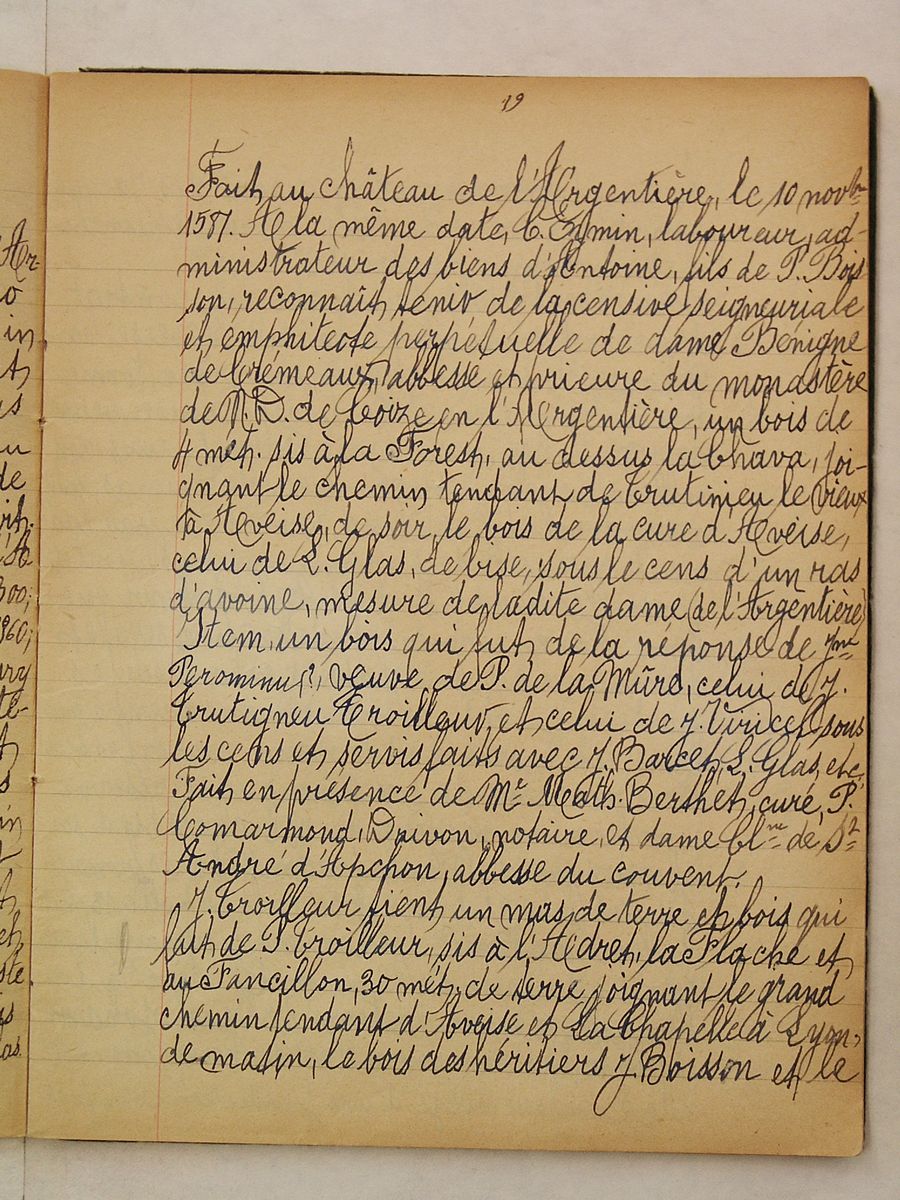 19
Fait au château de l'Argentière, le 10 novbre
1587. A la même date, C. Eymin, laboureur, ad-
ministrateur des biens d'Antoine, fils de P. Bois
son, reconnaît tenir de la censive seigneuriale
et emphiteote perpétuelle de dame Bénigne
de Crémeaux, abbesse et prieure du monastère
de N. D. de Coize en l'Argentière, un bois de
4 met. sis à la Forest, au dessus la Chava, joi-
gnant le chemin tendant de Trutinieu le vieux
à Aveise, de soir, le bois de la cure d'Aveise,
celui de L. Glas, de bise, sous le cens d'un ras
d'avoine, mesure de ladite dame (de l'Argentière)
Item, un bois qui fut de la réponse de Jme
Perominus?, veuve de P. de la Mûre, celui de J.
Trutigneu Troilleur, et celui de J. Viricel, sous
les cens et servis faits avec J. Barcet, L. Glas, etc.
Fait en présence de Mr Math. Berthet, curé, P.
Comarmond, Drivon, notaire, et dame Clne de St
André d'Apchon, abbesse du couvent.
J. Troilleur tient un mas de terre et bois qui
fut de P. Troilleur, sis à l'Adret, la Flache et
au Fancillon, 30 mét. de terre joignant le grand
chemin tendant d'Aveise et La Chapelle à Lyon,
de matin, le bois des héritiers J. Boisson et le
Ar-
o
in
t
s
u
de
300;
1960;
ury
te-
t
s
in
et
ste
us
las